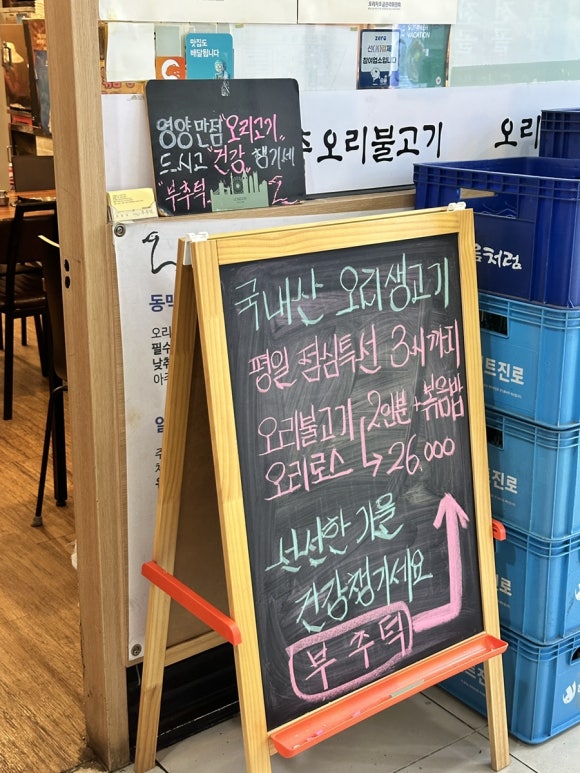 맛집도
배달됩니다
zero
영양만점 "오리고기"
드시고 "건강" 챙기세
"부추턱"
주 오리불고기
오리
음처럼
트진로
진로
국내산 오리생고기
평일 점심특선 3시까지
오리불고기 2인분+볶음밥
오리로스 → 26,000
선선한 가을
건강챙기세요
부추턱